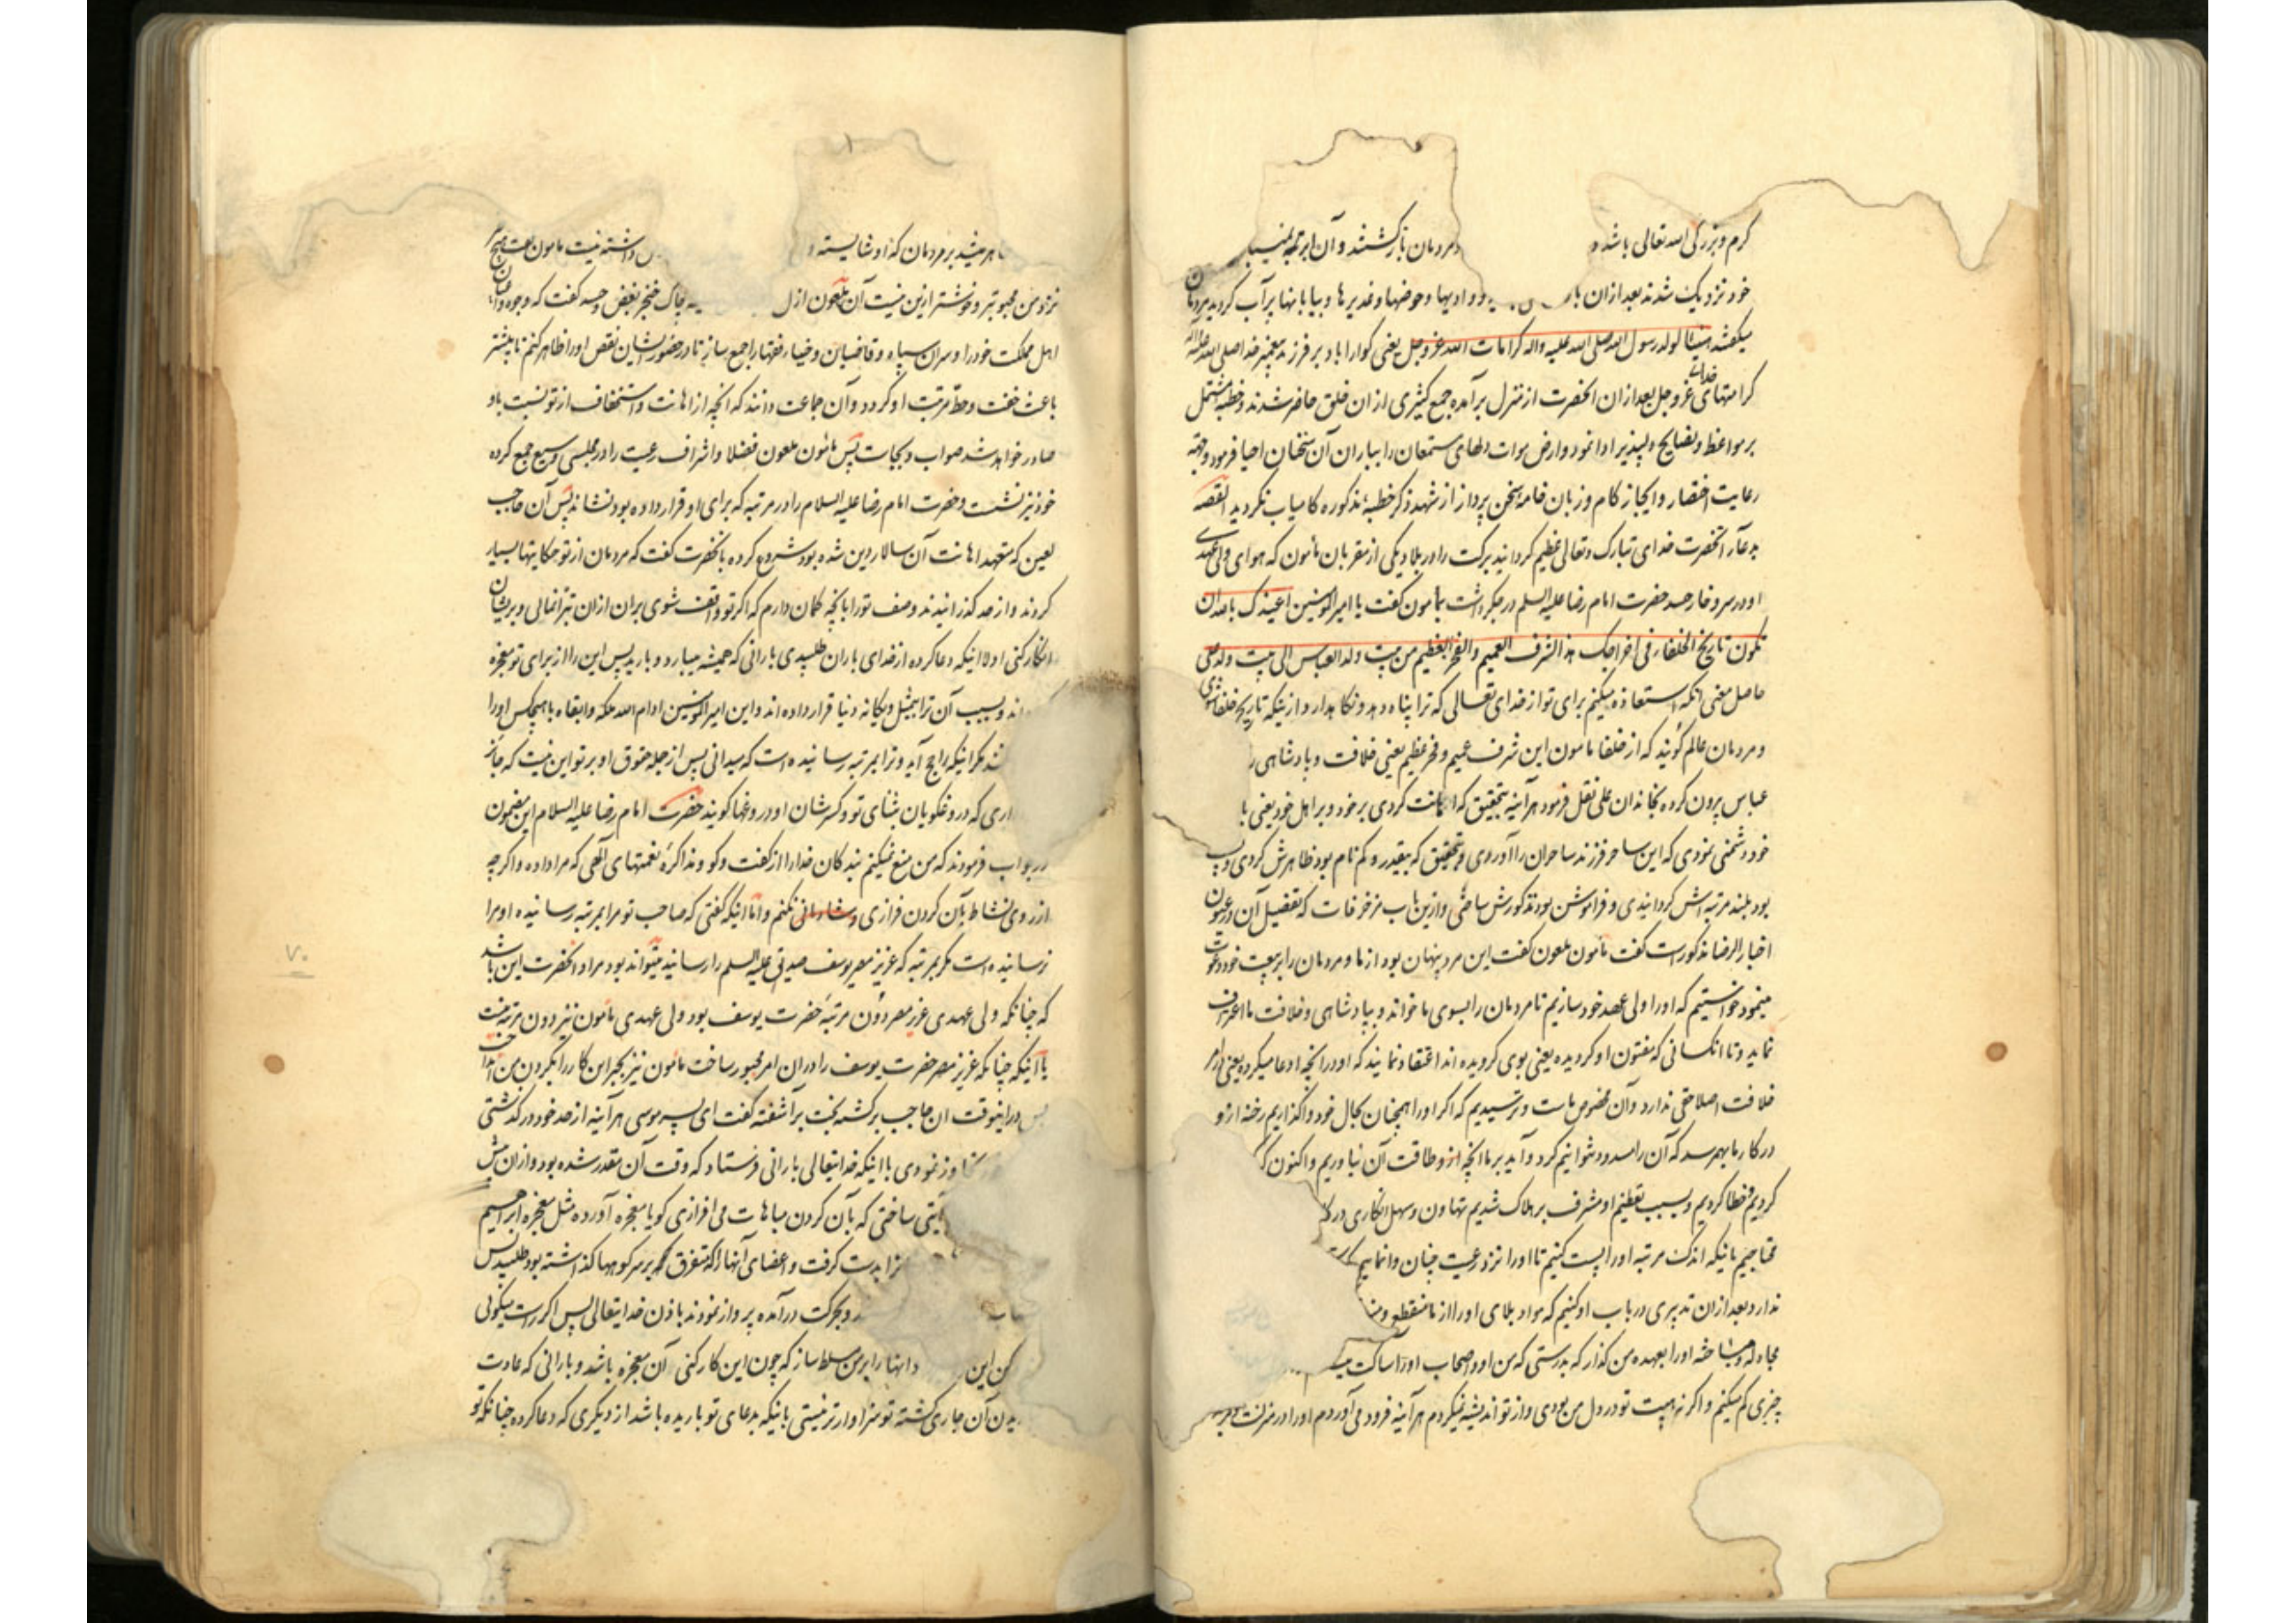 کرم و بزرگی الله تعالی باشد و مردمان بازگشتند و آن ابر همیشه
خود نزدیک شدند بعد ازان بار و وادیها و حوضها و غدیرها و بیابانها پر آب گردید مردمان
میگفتند هنیئا لولد رسول الله صلی الله علیه واله کرامات الله عز و جل یعنی گوارا باد بر فرزند پیغمبر خدا صلی الله علیه واله
کرامتهای خدای عز و جل بعد ازان انحضرت از منزل برآمده جمع کثیری از ان خلق حاضر شدند و خطبه مشتمل
بر مواعظ و نصایح دلپذیر ادا نمود و ارض موات دلهای مستمعان را بباران آن سخنان احیا فرمود و جهة
رعایت اختصار و ایجاز کام و زبان خامه سخن پرداز از شهد ذکر خطبهٔ مذکوره کامیاب نکردید القصه
بدعآء آنحضرت خدای تبارک و تعالی عظیم کردانید برکت را در بلاد یکی از مقربان مأمون که هوای ولی عهدی
او در سر و خار حسد حضرت امام رضا علیه السلم در جکر داشت بمأمون گفت یا امیر المومنین اعیذک بالله ان
تکون تاریخ الخلفاء فی اخراجک هذا الشرف العمیم والفخر العظیم من بیت ولد العباس الی بیت ولد علی
حاصل معنی آنکه استعاذه میکنم برای تو از خدای تعالی که ترا پناه دهد و نگاهدارد از اینکه تاریخ خلفا شوی
و مردمان عالم گویند که از خلفا مأمون این شرف عمیم و فخر عظیم یعنی خلافت و پادشاهی را
عباس بیرون کرده بخاندان علی نقل فرمود هرآینه بتحقیق که اعانت کردی بر خود و بر اهل خود یعنی با
خود دشمنی نمودی که این ساحر فرزند ساحران را آوردی و بتحقیق که بیقدر و کم نام بود ظاهرش کردی و پست
بود بلند مرتبه اش کردانیدی و فراموش بود مذکورش ساختی و ازین باب مزخرفات که تفصیل آن در عیون
اخبار الرضا مذکورست گفت مأمون ملعون گفت این مرد پنهان بود از ما و مردمان را به بیعت خود دعوت
مینمود خواستیم که او را ولی عهد خود سازیم تا مردمان را بسوی ما خواند و بپادشاهی و خلافت ما اعتراف
نماید و تا انکسانی که مفتون او کردیده یعنی بوی کرویده اند اعتقاد نمایند که او در انچه ادعا میکرده یعنی در امر
خلافت اصلا حقی ندارد و آن مخصوص ماست و ترسیدیم که اکر او را همچنان بحال خود واگذاریم رخنه از او
در کار ما بهم رسد که آن را مسدود نتوانیم کرد و آید بر ما انچه از و طاقت آن نیاوریم و اکنون که
کردیم و خطا کردیم و بسبب تعظیم او مشرف بر هلاک شدیم تهاون و سهل انکاری در کار
محتاجیم بانیکه اندک مرتبه او را پست کنیم تا او را نزد رعیت چنان وانماییم که
ندارد بعد ازان تدبیری در باب او کنیم که مواد بلای او را از ما منقطع و
مجادله و مباحثه او را بعهده من گذار که بدرستی که من او و اصحاب او را ساکت
چیزی کم میکنم و اکر نه هیبت تو در دل من بودی و از تو اندیشه نمیکردم هرآینه فرود می آوردم او را در منزلت
ظاهر میشد بر مردمان که او شایسته داشته نیست مامون گفت هیچ چیز
نزد من محبوبتر و خوشتر ازین نیست آن ملعون ازل سینه چاک خنجر بغض و حسد گفت که وجوه و اعیان
اهل مملکت خود را و سران سپاه و قاضیان و خیار فقها را جمع ساز تا در حضور ایشان نقص او را ظاهر کنم تا بیشتر
باعث خفت و حط مرتبت او کردد و آن جماعت دانند که انچه از اهانت و استخفاف از تو نسبت باو
صادر خواهد شد صواب و بجاست پس مأمون ملعون فضلا و اشراف رعیت را در مجلسی وسیع جمع کرده
خود نیز نشست و حضرت امام رضا علیه السلام را در مرتبه که برای او قرار داده بود نشاند پس آن حاجب
لعین که متعهد اهانت آن سالار دین شده بود شروع کرده بانحضرت گفت که مردمان از تو حکایتها بسیار
کردند و از حد گذرانیدند وصف تو را بانچه گمان دارم که اکر تو واقف شوی بران ازان تبرا نمائی و بریشان
انکار کنی اولا اینکه دعا کرده از خدای باران طلبیدی بارانی که همیشه میبارد و بارید پس این را از برای تو معجزه
اند و بسبب آن ترا بیمثل و یکانه دنیا قرار داده اند و این امیر المومنین ادام الله ملکه و ابقاه با هیچکس او را
نکند مکر اینکه راجح آید و ترا بمرتبه رسانیده است که میدانی پس از جمله حقوق او بر تو این نیست که جایز
داری که دروغگویان بثنای تو و کسر شان او دروغها گویند حضرت امام رضا علیه السلام این مضمون
در جواب فرمودند که من منع نمیکنم بندکان خدا را از گفت و گو و مذاکرهٔ نعمتهای الهی که مرا داده و اگرچه
از روی نشاط بآن کردن فرازی و شادمانی نکنم و اما اینکه گفتی که صاحب تو مرا بمرتبه رسانیده او مرا
نرسانیده است مکر بمرتبه که عزیز مصر یوسف صدیق علیه السلم را رسانید میتواند بود مراد انحضرت این باشد
که چنانکه ولی عهدی عزیز مصر دون مرتبهٔ حضرت یوسف بود ولی عهدی مأمون نیز دون مرتبه منست
یا اینکه چنانکه عزیز مصر حضرت یوسف را دران امر مجبور ساخت مأمون نیز بجبر این کار را بکردن من انداخت
پس دراینوقت ان حاجب برکشته بخت برآشفته گفت ای پسر موسی هرآینه از حد خود درگذشتی
تجاوز نمودی با اینکه خدایتعالی بارانی فرستاد که وقت آن مقدر شده بود و ازان پیش
آیتی ساختی که بآن کردن مباهات می افرازی گویا معجزه آورده مثل معجزه ابراهیم
را بدست کرفت و اعضای آنها را که متفرق بر سر کوهها گذاشته بود طلبید پس
و بحرکت درآمده پرواز نمودند باذن خدایتعالی پس اکر راست میکوئی
کن این و اینها را بر من مسلط ساز که چون این کار کنی آن معجزه باشد و بارانی که عادت
بباریدن آن جاری گشته تو سزاوارتر نیستی بانیکه بدعای تو باریده باشد از دیگری که دعا کرده چنانکه تو
۷۰